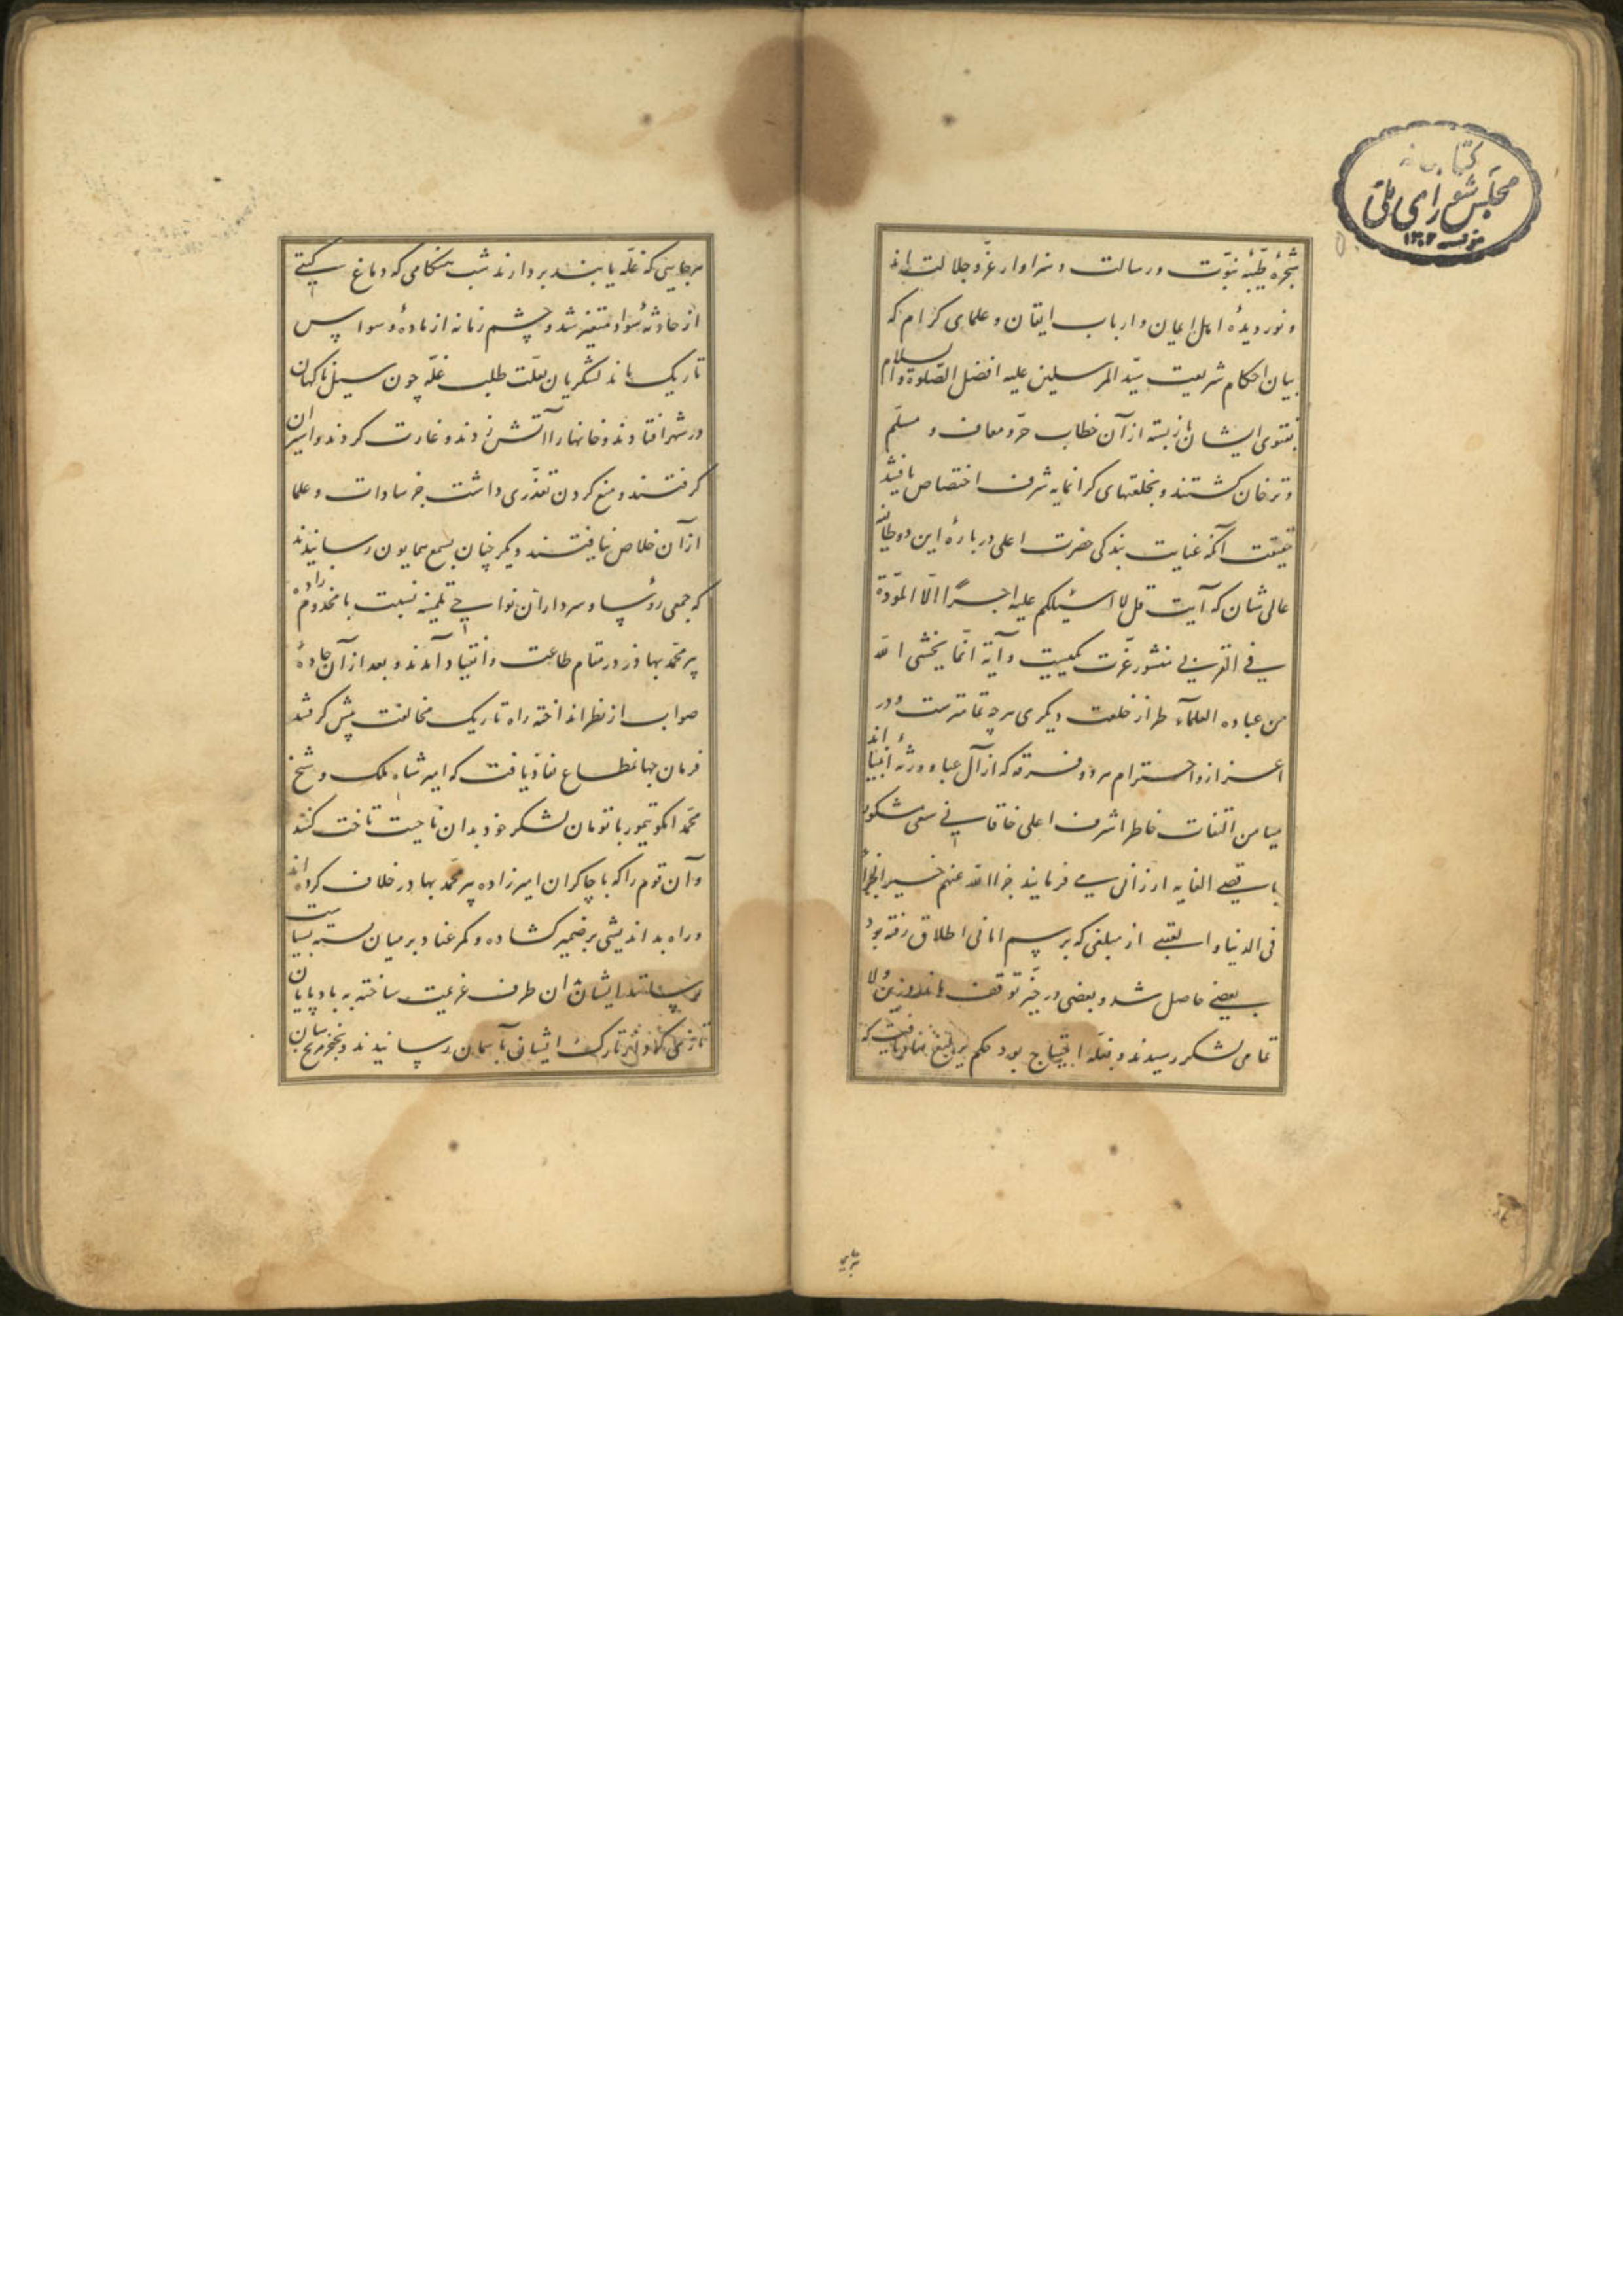 کتابخانه
مجلس شورای ملی
شجرهٔ طیّبهٔ نبوّت و رسالت و سزاوار عزّ و جلالت‌اند
و نور دیدهٔ اهل ایمان و ارباب ایقان و علمای کرام که
بیان احکام شریعت سیّد المرسلین علیه افضل الصّلوة والسلام
بفتوی ایشان باز بسته از آن خطاب حرّ و معاف و مسلّم
و ترخان کشتند و بخلعتهای کرانمایه شرف اختصاص یافتند
حقیقت آنکه عنایت بندکی حضرت اعلی دربارهٔ این دو طایفه
عالی شان که آیت قل لا اسئلکم علیه اجراً الّا المودّة
فی القربی منشور عزّت یکیست و آیة انّما یخشی الله
من عباده العلمآء طراز خلعت دیکری هرچه تمامترست و در
اعزاز و احترام هر دو فرقه که از آل عبا و ورثهٔ انبیااند
میامن التفات خاطر اشرف اعلی خاقانی سعی مشکور
باقصی الغایه ارزانی می فرمایند جزا الله عنهم خیر الجزاء
فی الدنیا و العقبی از مبلغی که برسم امانی اطلاق رفته بود
بعضی حاصل شد و بعضی در حیّز توقف ماند و زین ولا
تمامی لشکر رسیدند و بغلّه احتیاج بود حکم یرلیغ نفاذ یافت که
هرجایی که غلّه یابند بردارند شب هنکامی که دماغ کیتی
از حادثهٔ سودا متغیّر شد و چشم زمانه از مادهٔ وسواس
تاریک ماند لشکریان بعلّت طلب غلّه چون سیل ناکهان
در شهر افتادند و خانها را آتش زدند و غارت کردند و اسیران
کرفتند و منع کردن تعذّری داشت جز سادات و علما
از آن خلاص نیافتند دیکر چنان بسمع همایون رسانیدند
که جمعی رؤسا و سرداران نواحی تلمینه نسبت با مخدوم‌زاده
پیر محمّد بهادر در مقام طاعت و انقیاد آمدند و بعد از آن جادهٔ
صواب از نظر انداخته راه تاریک مخالفت پیش کرفتند
فرمان جهانمطاع نفاذ یافت که امیر شاه ملک و شیخ
محمّد ایکو تیمور با تومان لشکر خود بدان ناحیت تاخت کنند
و آن قوم را که با چاکران امیرزاده پیر محمّد بهادر خلاف کرده‌اند
و راه بد اندیشی بر ضمیر کشاده و کمر عناد بر میان بسته بسیاست
رسانند ایشان از آن طرف عزیمت ساخته به بادپایان
تازی تارک ایشانی بآسمان رسانیدند و بخنجر مریخ سان